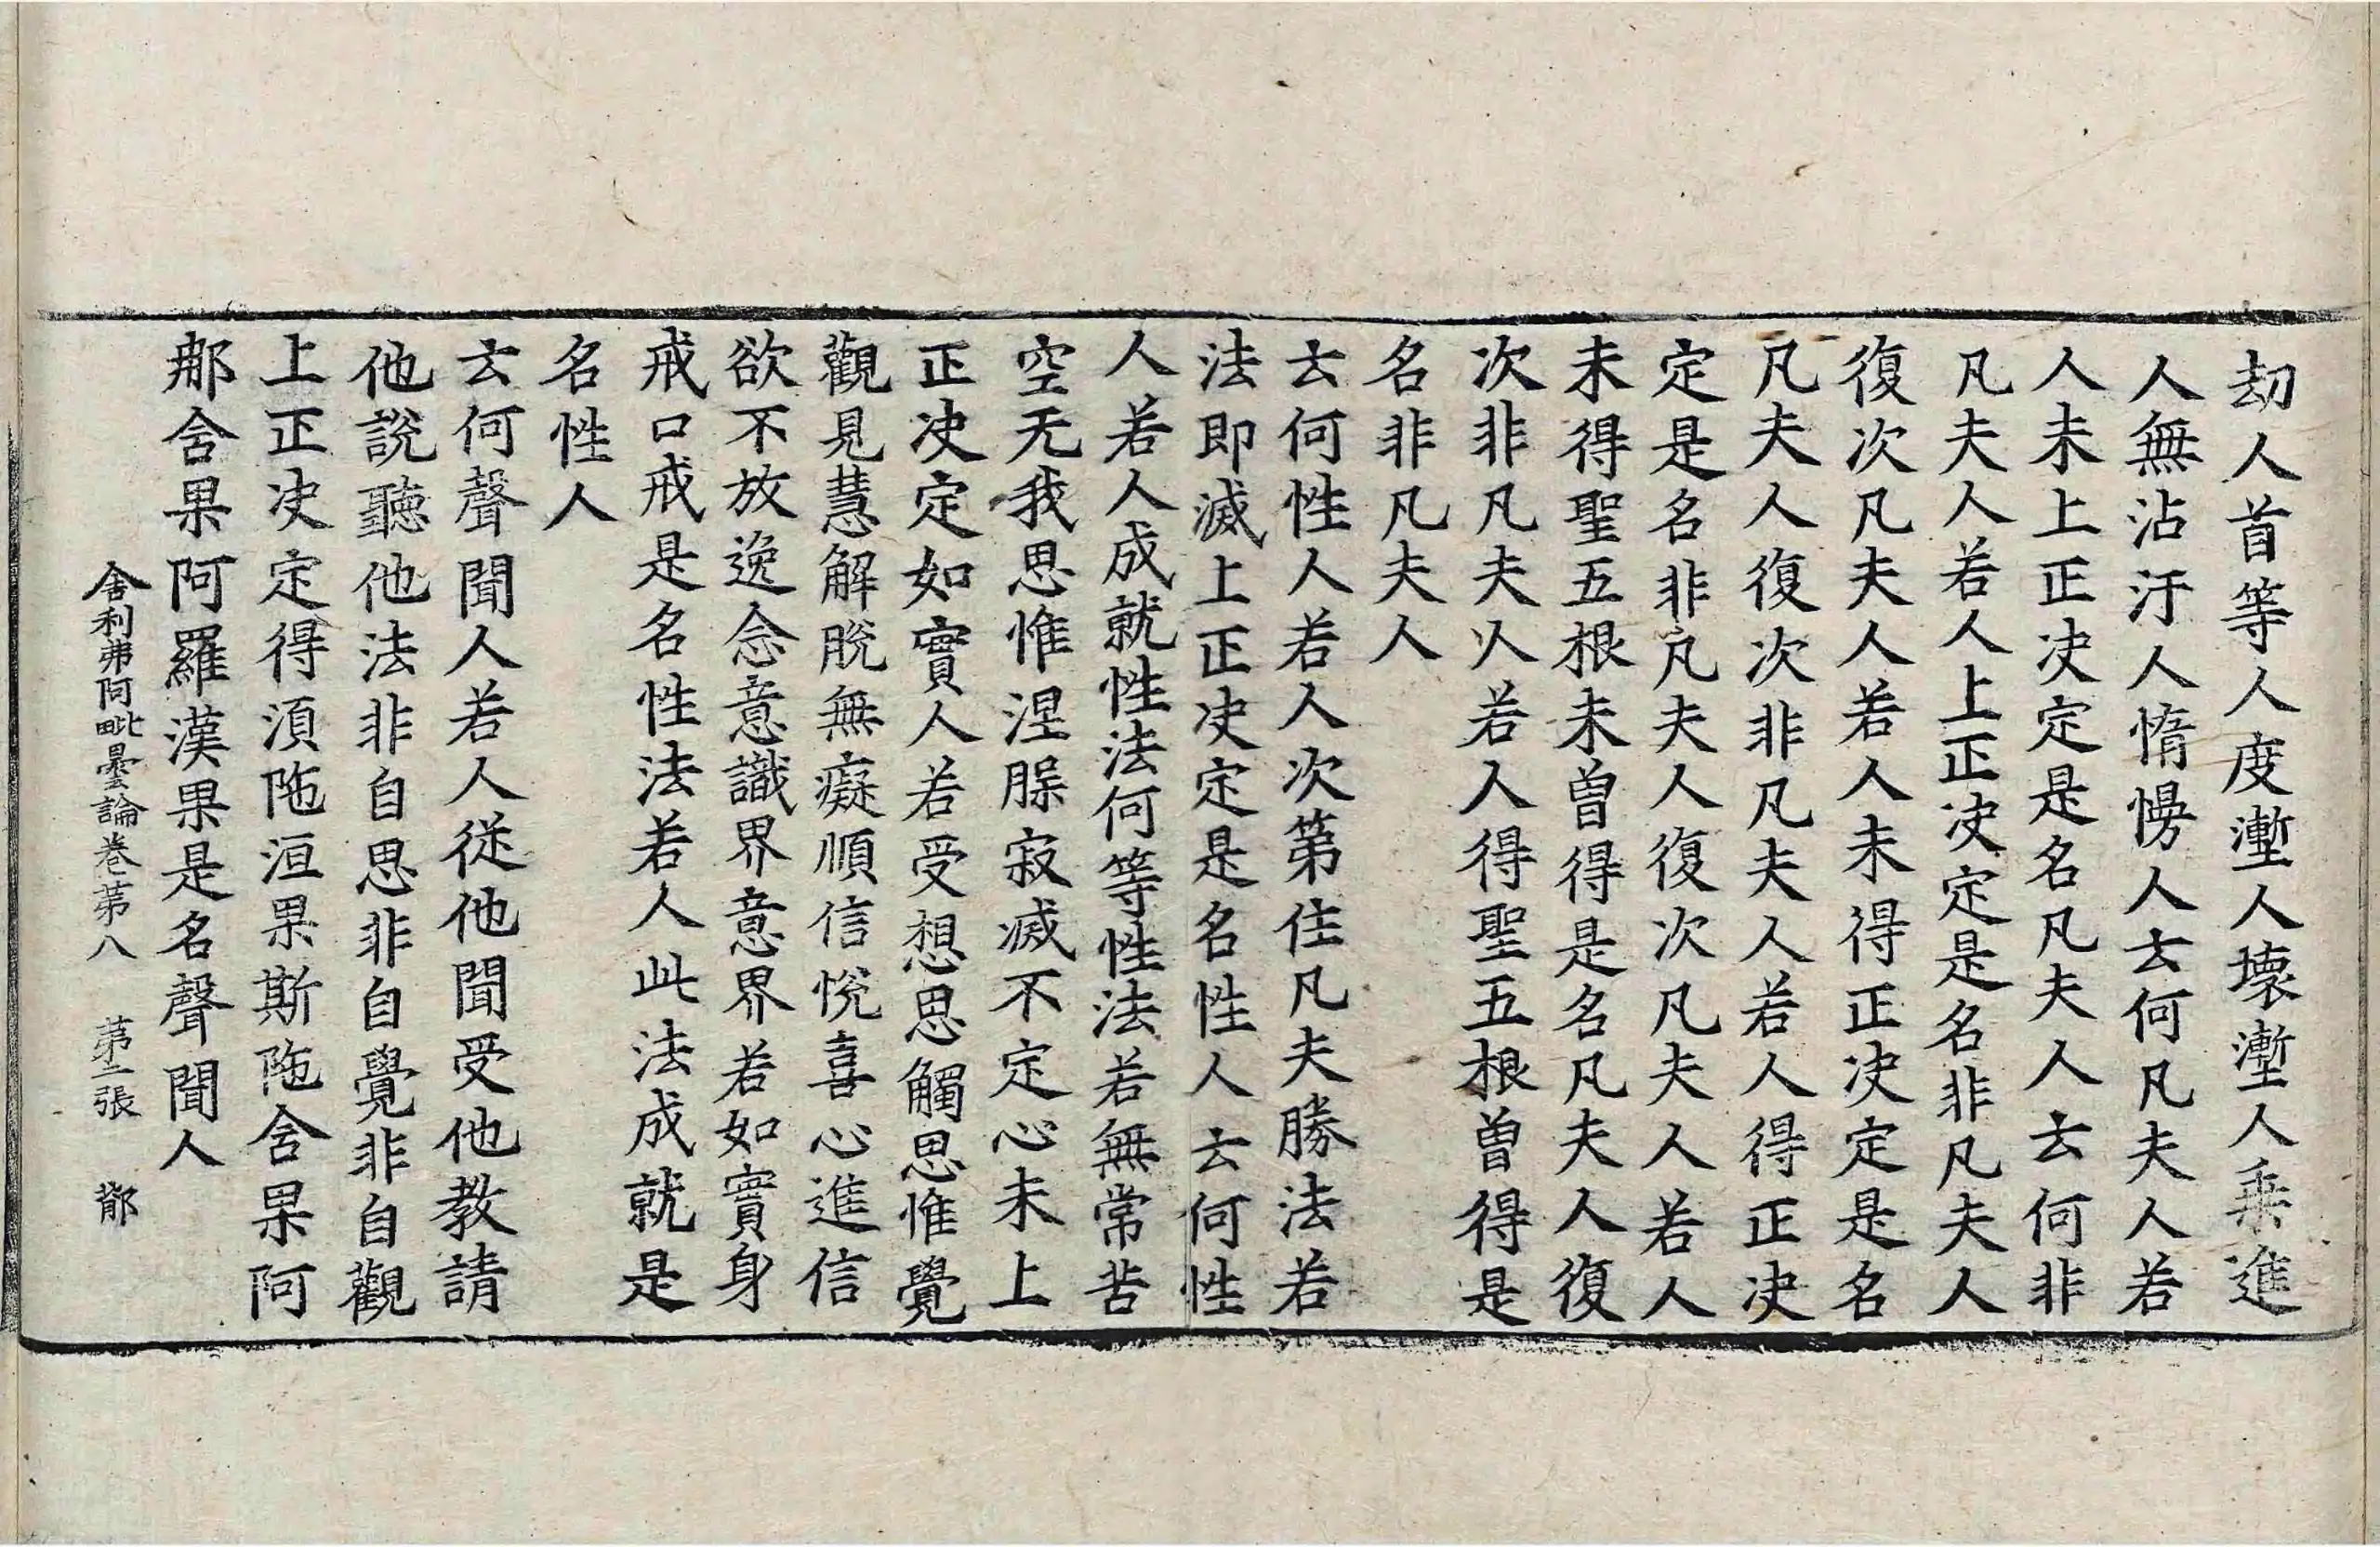 刼人首等人度塹人壞塹人乗進
人無沾汙人憜慢人云何凡夫人若
人未上正决定是名凡夫人云何非
凡夫人若人上正决定是名非凡夫人
復次凡夫人若人未得正决定是名
凡夫人復次非凡夫人若人得正决
定是名非凡夫人復次凡夫人若人
未得聖五根未曽得是名凡夫人復
次非凡夫人若人得聖五根曽得是
名非凡夫人
云何性人若人次第住凡夫勝法若
法即滅上正决定是名性人云何性
人若人成就性法何等性法若無常苦
空无我思惟涅槃寂滅不定心未上
正决定如實人若受想思觸思惟覺
觀見慧解脫無癡順信悅喜心進信
欲不放逸念意識界意界若如實身
戒口戒是名性法若人此法成就是
名性人
云何聲聞人若人從他聞受他教請
他說聽他法非自思非自覺非自觀
上正决定得湏陁洹果斯陁含果阿
那含果阿羅漢果是名聲聞人
舍利弗阿毗曇論卷苐八 苐二張 鄁